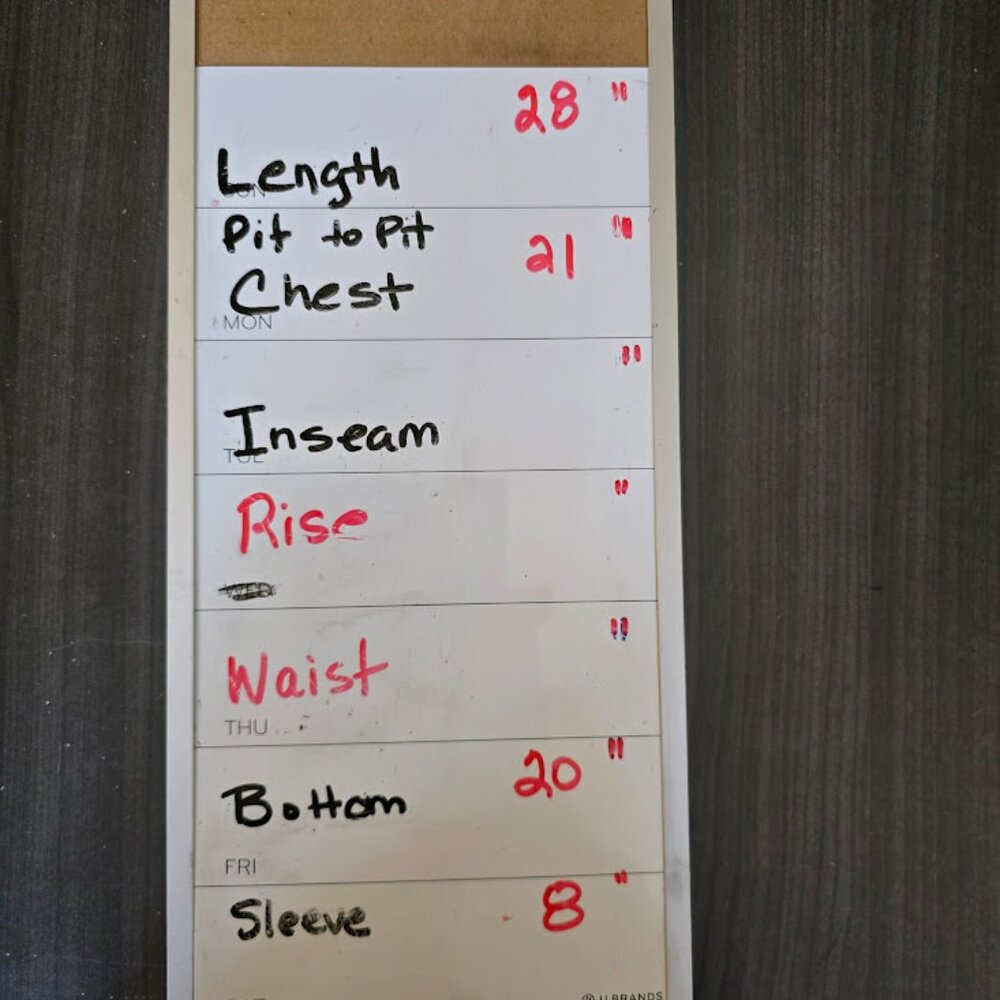 28 "
Length
SUN
Pit to Pit
21 "
Chest
MON
"
Inseam
TUE
"
Rise
WED
"
Waist
THU
20 "
Bottom
FRI
8 "
Sleeve
U BRANDS